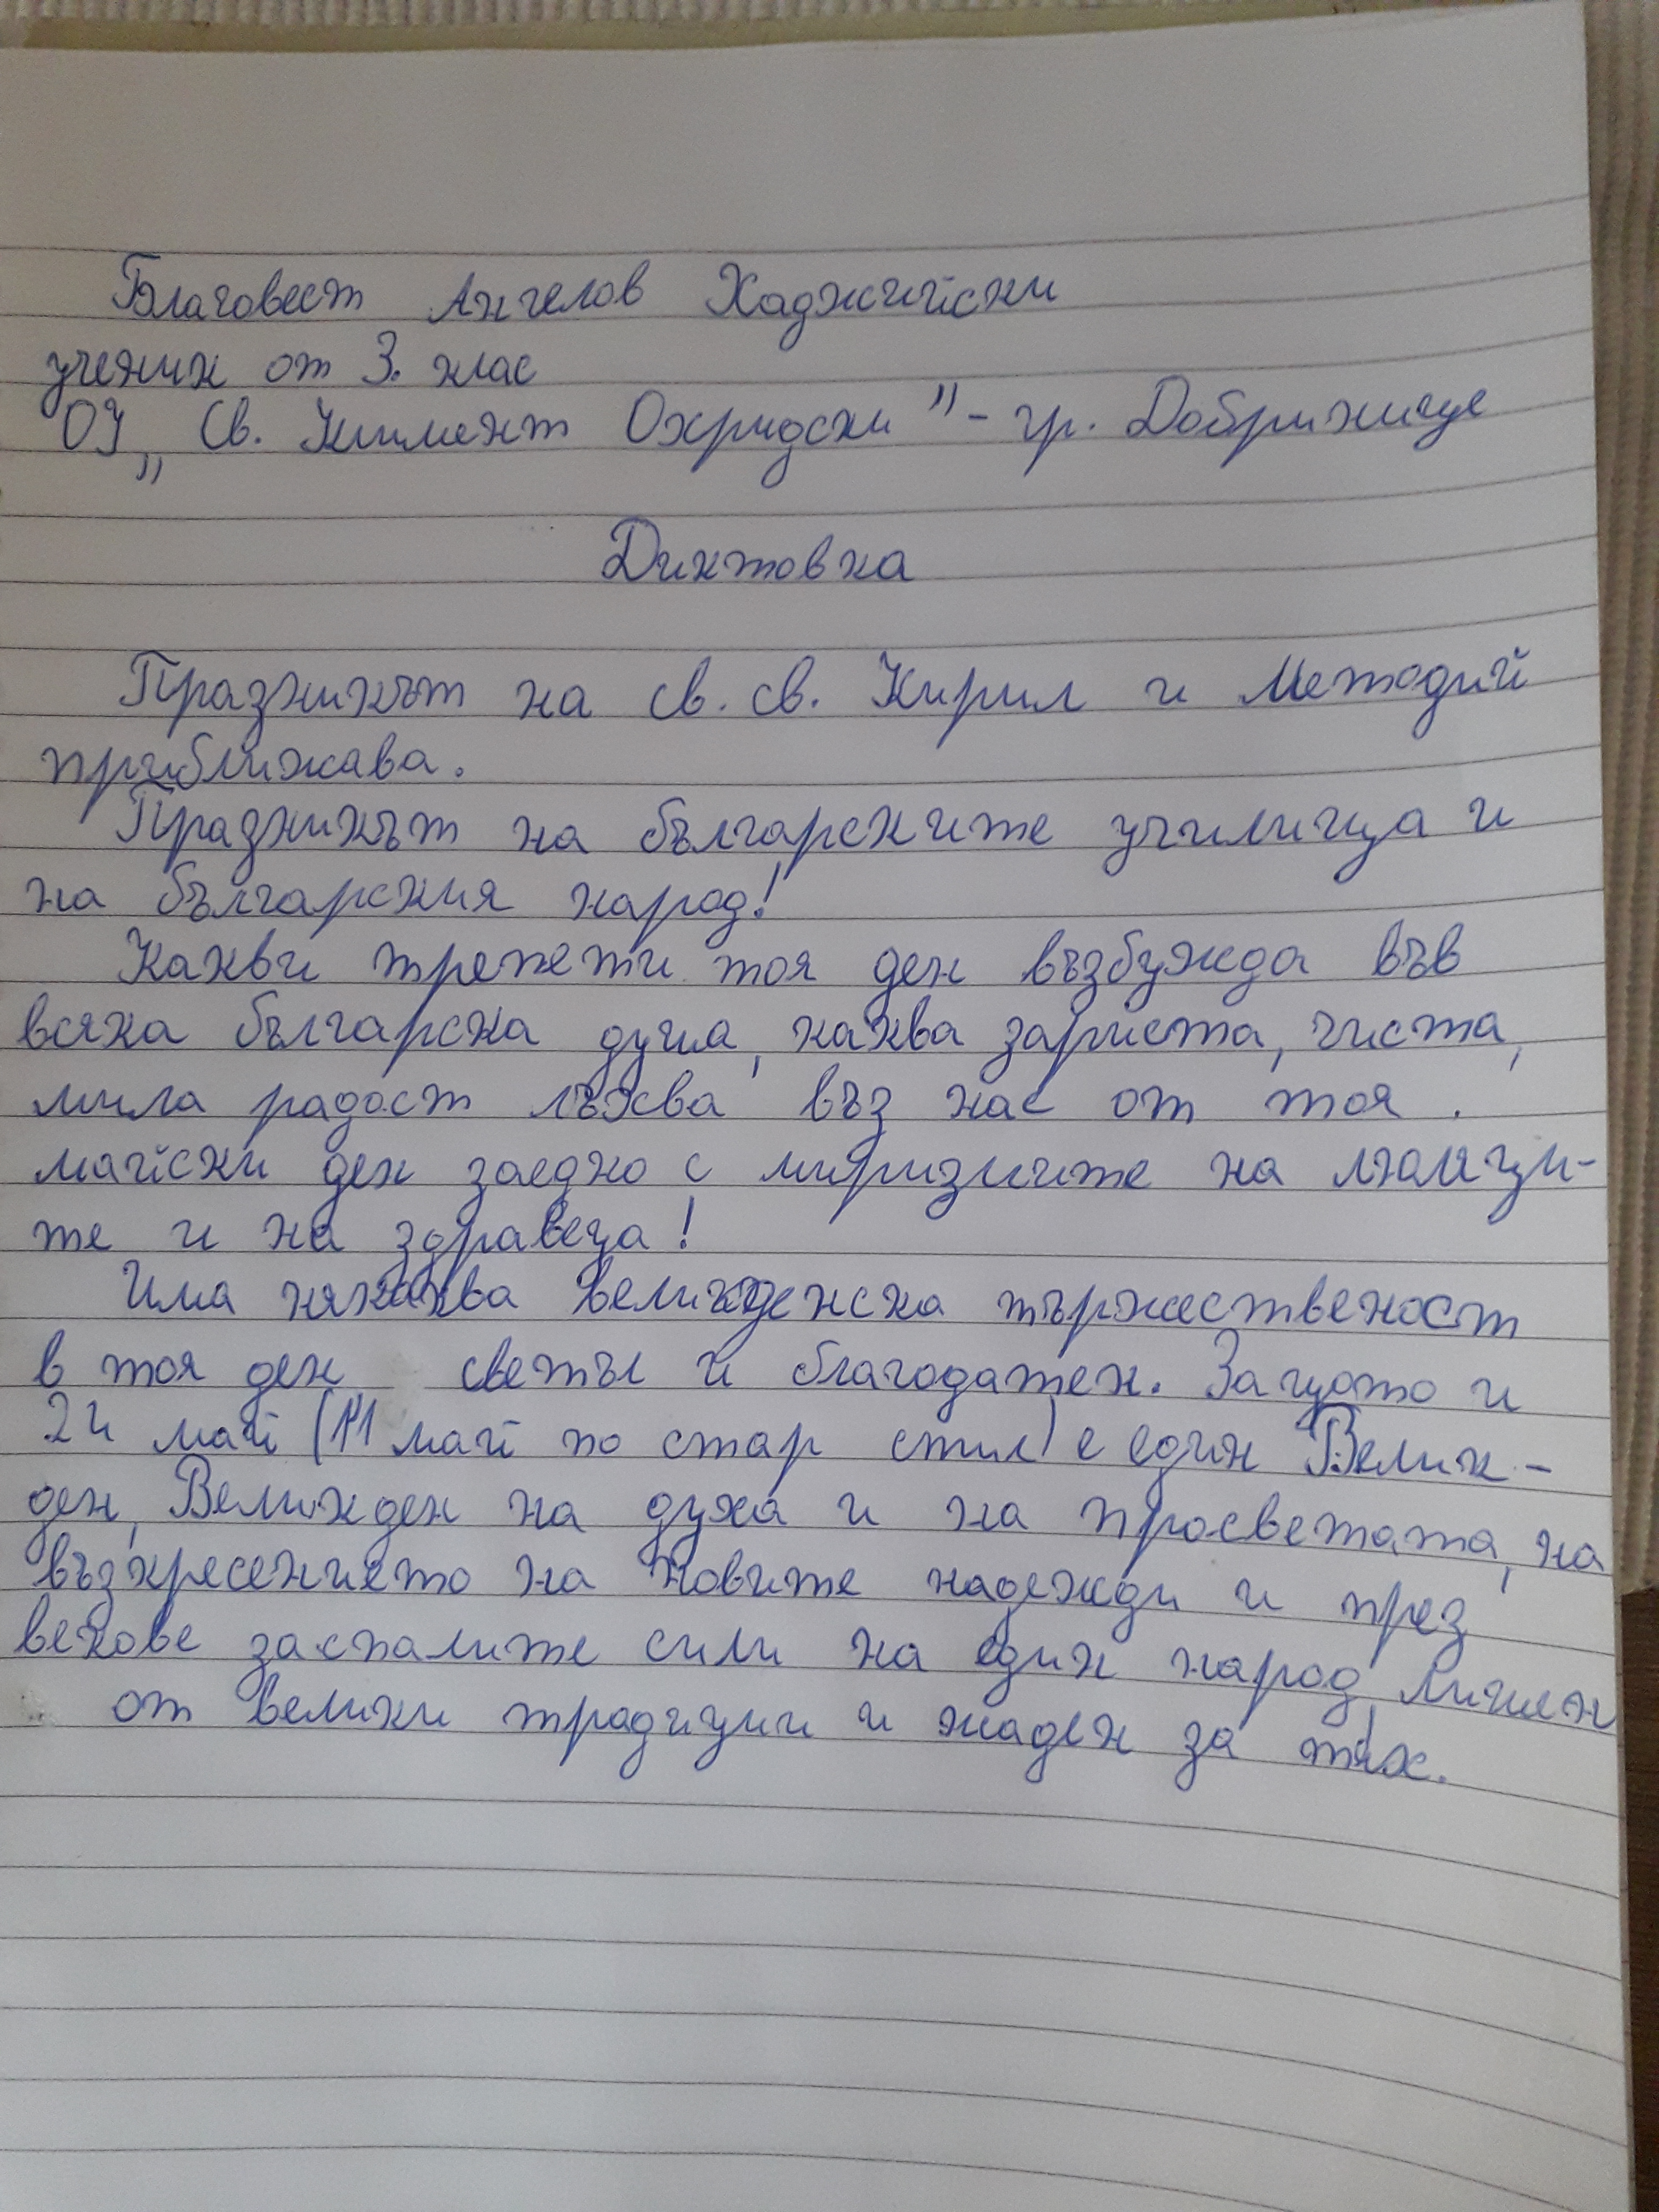 Благовест Ангелов Хаджийски
ученик от 3. клас
ОУ „Св. Климент Охридски" - гр. Добринище
Диктовка
Празникът на св. св. Кирил и Методий
приближава.
Празникът на българските училища и
на българския народ!
Какви трепети тоя ден възбужда във
всяка българска душа, каква зариста, чиста,
мила радост лъхва въз нас от тоя .
майски ден заедно с миризмите на люляци-
те и на здравеца!
Има някаква великденска тържественост
в тоя ден светъл и благодатен. Защото и
24 май (11 май по стар стил) е един Велик-
ден, Великден на духа и на просветата, на
възкресението на новите надежди и през
векове заспалите сили на един народ, лишен
от велики традиции и жаден за тях.